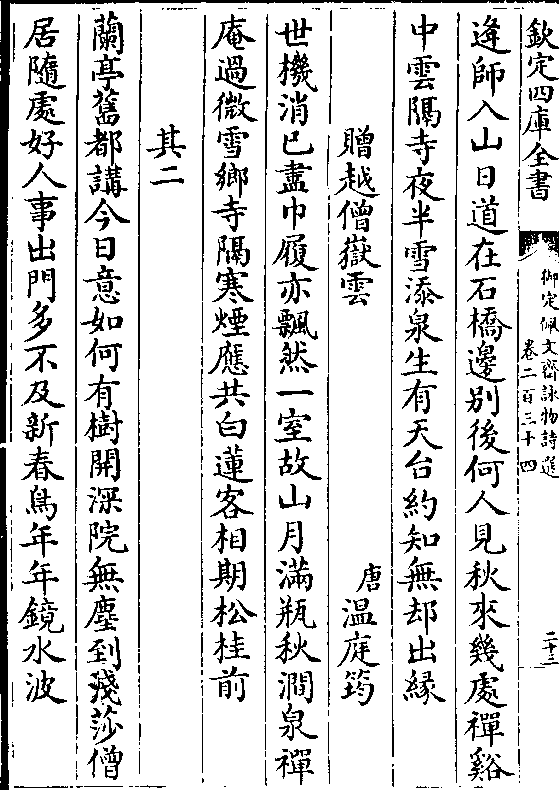 欽定四庫全書
御定佩文齋詠物詩選
卷二百三十四
二十三
逢師入山日道在石橋邊别後何人見秋來幾處禪谿
中雲隔寺夜半雪添泉生有天台約知無却出緣
贈越僧嶽雲 唐温庭筠
世機消已盡巾履亦飄然一室故山月滿瓶秋澗泉禪
庵過微雪鄉寺隔寒煙應共白蓮客相期松桂前
其二
蘭亭舊都講今日意如何有樹開深院無塵到殘莎僧
居隨處好人事出門多不及新春鳥年年鏡水波